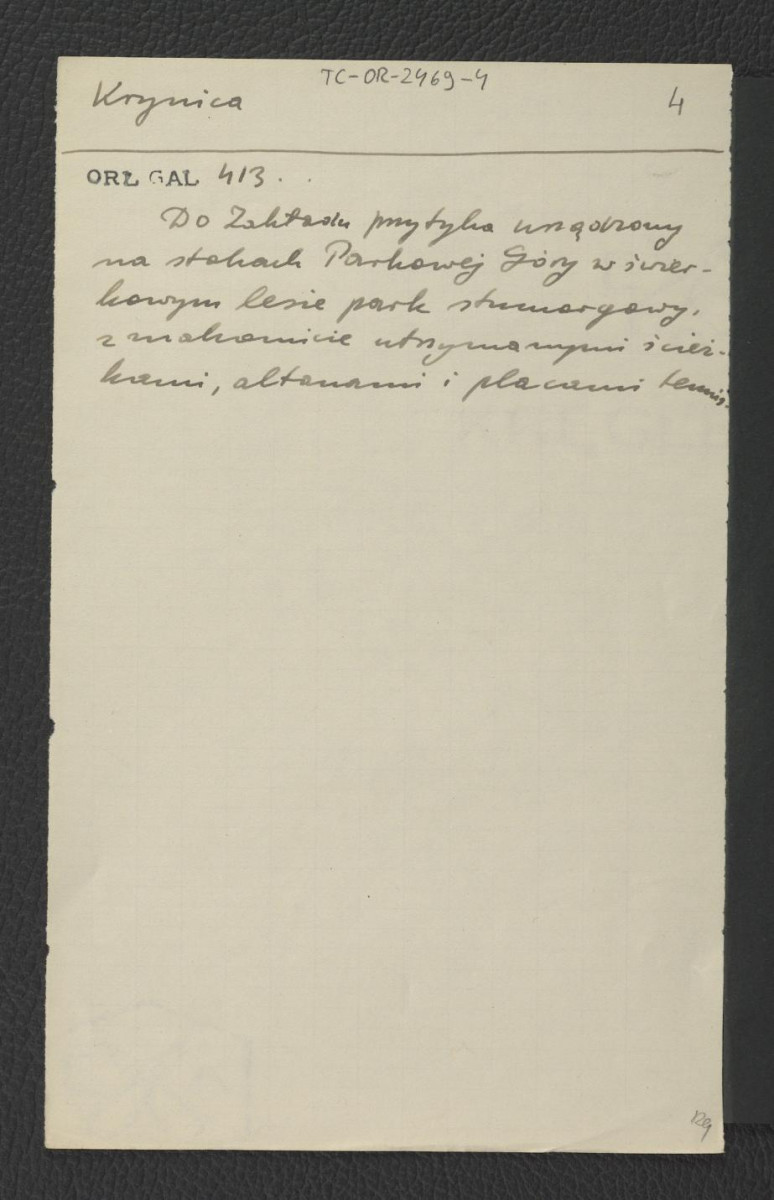 TC-OR-2469-4
Krynica 4
ORŁ GAL 413 . .
Do Zakładu przytyka urządzony
na stokach Parkowej Góry w świer-
kowym lesie park stumorgowy,
z znakomicie utrzymanymi ścież-
kami, altanami i placami tennis.